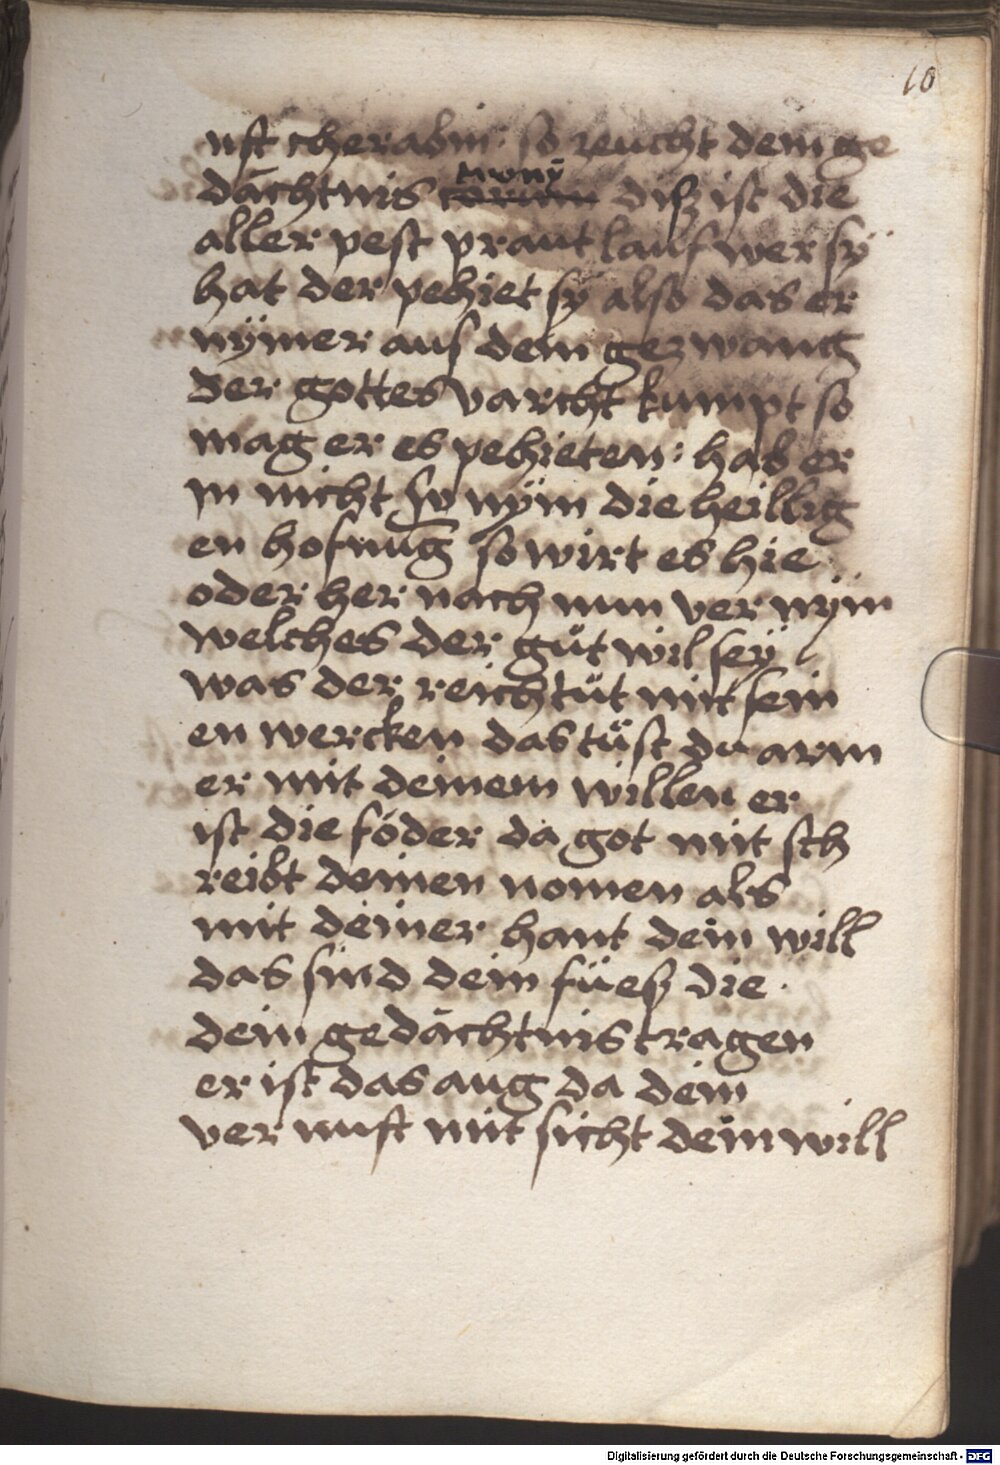 10
nft cherabin: so reucht dem ge
dächtnis trony disz ist die
aller pest praut lauf wer sÿ
hat der pehiet sÿ also das er
nÿmer aus dem gezwang
der gottes varcht kumpt so
mag er es pehieten: hab er
in nicht so nÿm die heillig
en hofnūg so wirt es hie
oder her nach nun ver nÿm
welches der gůt wil seÿ
was der reich tůt mit sein
en wercken das tůst du arm
er mit deinem willen er
ist die föder da got mit sch
reibt deinen nomen als
mit deiner hant dein will
das sind dein füesz die
dein gedächtnis tragen
er ist das aug da dein
ver nuft mit sicht dein will
Digitalisierung gefördert durch die Deutsche Forschungsgemeinschaft - DFG